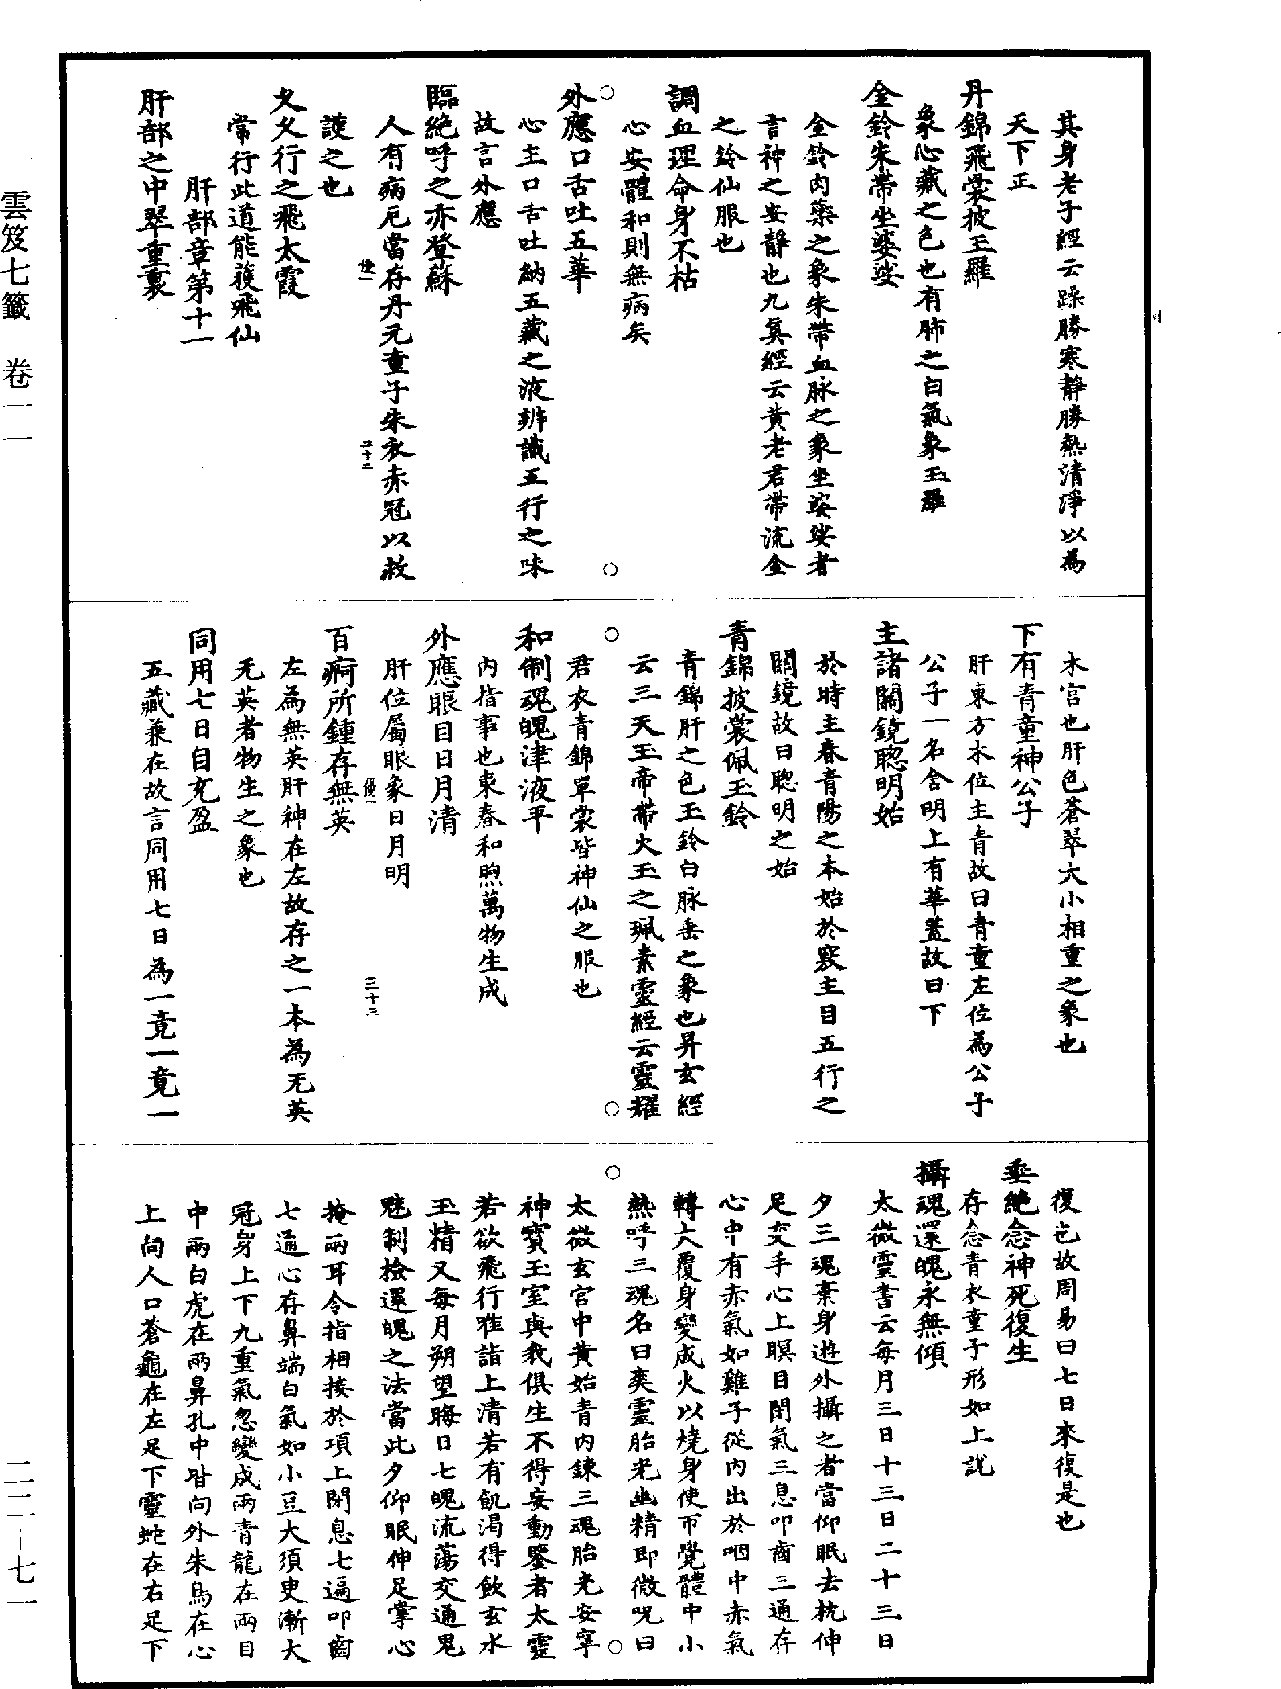 其身老子經云躁勝寒靜勝熱清淨以為
天下正
丹錦飛裳披玉羅
象心藏之色也有肺之白氣象玉羅
金鈴朱帶坐婆娑
金鈴肉藥之象朱帶血脉之象坐婆娑者
言神之安靜也九真經云黃老君帶流金
之鈴仙服也
調血理命身不枯
心安體和則無病矣
外應口舌吐五華
心主口舌吐納五藏之液辨識五行之味
故言外應
臨絶呼之亦登蘇
人有病厄當存丹元童子朱衣赤冠以救
護之也
久久行之飛太霞
常行此道能獲飛仙
肝部章第十一
肝部之中翠重裏
木宮也肝色蒼翠大小相重之象也
下有青童神公子
肝東方木位主青故曰青童左位為公子
公子一名含明上有華蓋故曰下
主諸關鏡聰明始
於時主春青陽之本始於竅主目五行之
關鏡故曰聰明之始
青錦披裳佩玉鈴
青錦肝之色玉鈴白脉垂之象也昇玄經
云三天玉帝帶火玉之珮素靈經云靈耀
君衣青錦單裳皆神仙之服也
和制魂魄津液平
內指事也東春和煦萬物生成
外應眼目日月清
肝位屬眼象日月明
百痾所鍾存無英
左為無英肝神在左故存之一本為无英
无英者物生之象也
同用七日自充盈
五藏兼在故言同用七日為一竟一竟一
復也故周易曰七日來復是也
垂絶念神死復生
存念青衣童子形如上說
攝魂還魄永無傾
太微靈書云每月三日十三日二十三日
夕三魂棄身遊外攝之者當仰眠去枕伸
足交手心上瞑目閉氣三息叩齒三通存
心中有赤氣如雞子從內出於咽中赤氣
轉大覆身變成火以燒身使帀覺體中小
熱呼三魂名曰爽靈胎光幽精即微呪曰
太微玄宮中黃始青內鍊三魂胎光安寧
神寳玉室與我俱生不得妄動鑒者太靈
若欲飛行唯詣上清若有飢渴得飲玄水
玉精又每月朔望晦日七魄流蕩交通鬼
魅制撿還魄之法當此夕仰眠伸足掌心
掩兩耳令指相接於項上閉息七遍叩齒
七通心存鼻端白氣如小豆大須臾漸大
冠身上下九重氣忽變成兩青龍在兩目
中兩白虎在兩鼻孔中皆向外朱鳥在心
上向人口蒼龜在左足下靈蛇在右足下
雲笈七籤　卷一一
二二—七一